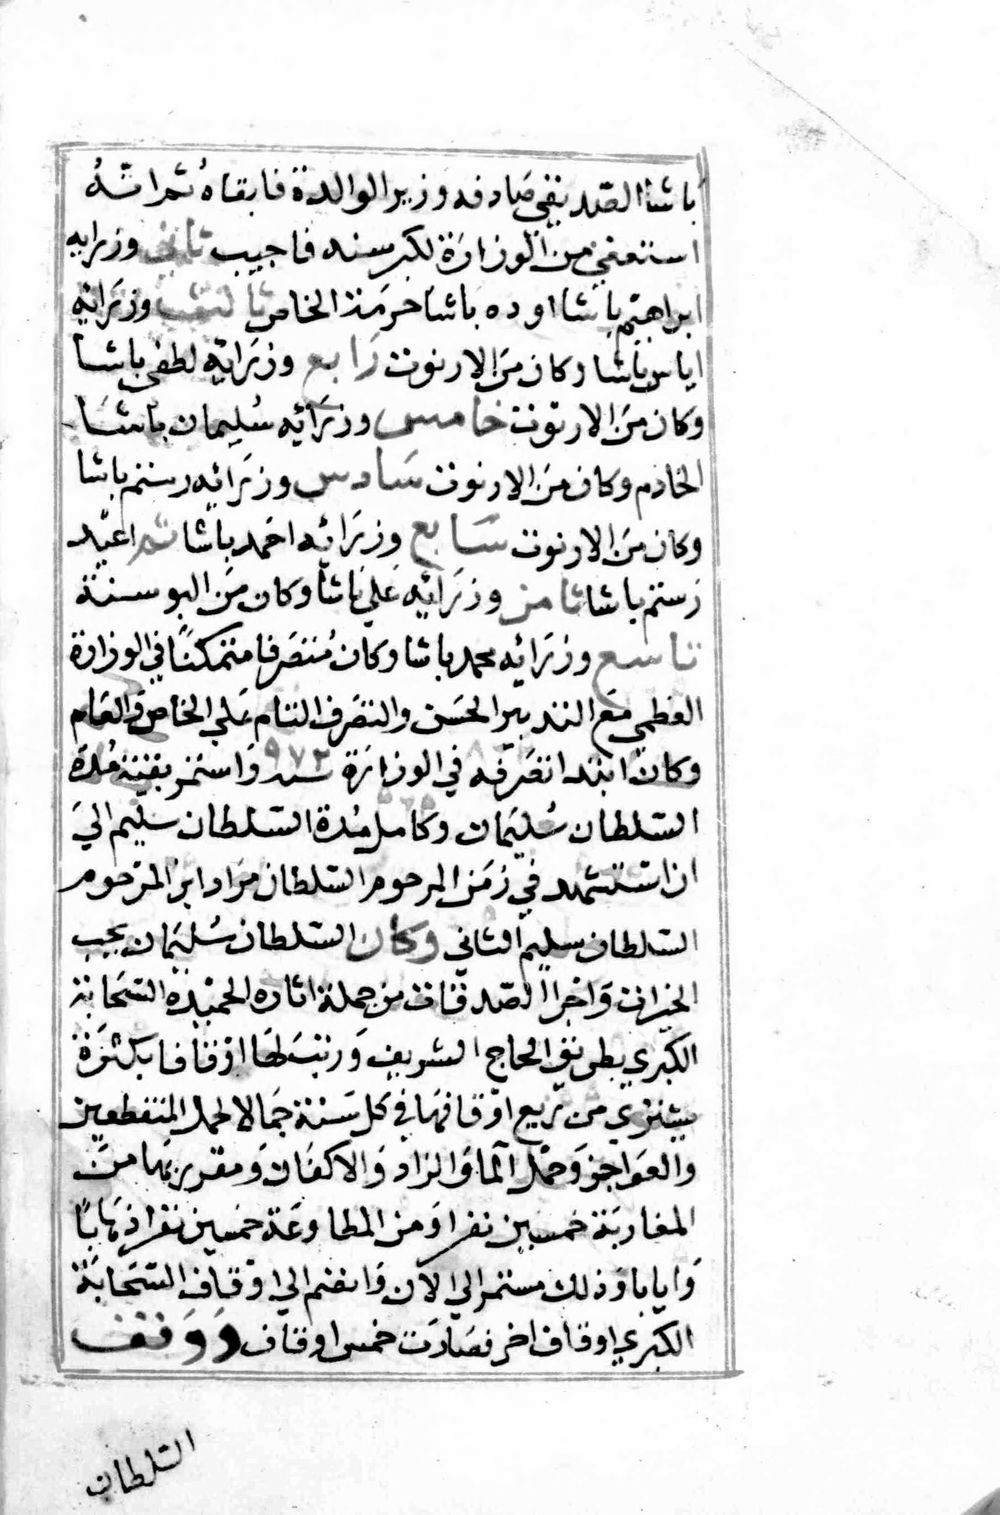 باشا الصديقي صادفه وزير الوالدة فابقاه ثم انه
استعفى من الوزارة لكبر سنه فاجيب ثاني وزرايه
ابراهيم باشا اوده باشا حرمة الخاص ثالث وزرائه
اياس باشا وكان من الارنوت رابع وزرائه لطفي باشا
وكان من الارنوت خامس وزرائه سليمان باشا
الخادم وكان من الارنوت سادس وزرائه رستم باشا
وكان من الارنوت سابع وزرائه احمد باشا ثم اعيد
رستم باشا ثامن وزرائه علي باشا وكان من البوسنة
تاسع وزرائه محمد باشا وكان متصرفا متمكنا في الوزارة
العظمى مع التدبير الحسن والتصرف التام على الخاص والعام
وكان ابتدا تصرفه في الوزارة سنة ٩٧٢ واستمر بقية مدة
السلطان سليمان وكامل مدة السلطان سليم الي
ان استشهد في زمن المرحوم السلطان مراد ابن المرحوم
السلطان سليم الثاني وكان السلطان سليمان يحب
الخيرات واجرا الصدقات من جملة اثاره الحميدة السحابة
الكبري بطريق الحاج الشريف ورتب لها اوقافا بكثرة
يشتري من ريع اوقافها في كل سنة جمالا لحمل المنقطعين
والعواجز وحمل الما والزاد والاكفان ومقرر بها من
المغاربة خمسين نفرا ومن المطاوعة خمسين نفرا ذهابا
وايابا وذلك مستمر الي الان وانضم الي اوقاف السحابة
الكبري اوقاف اخر فصارت خمس اوقاف ووقف
السلطان